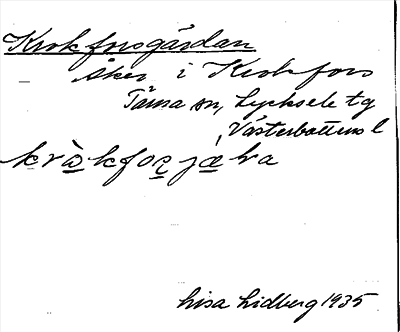 Krokforsgärdan
åker i Krokfors
Tärna sn, Lycksele tg
Västerbottens l
kràkfoʂjæḷa
Lisa Lidberg 1935